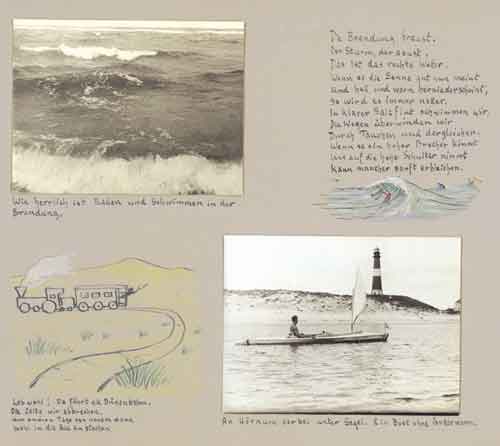 Die Brandung braust,
Der Sturm, der saust,
Das ist das rechte Wetter.
Wenn es die Sonne gut nun meint
Und hell und warm herniederscheint,
So wird es immer netter.
In klarer Salzflut schwimmen wir,
Die Wogen überwinden wir
Durch Tauchen und dergleichen.
Wenn so ein hoher Brecher kommt
uns auf die hohe Schulter nimmt
Kann mancher sanft erbleichen.
Wie herrlich ist Baden und Schwimmen in der
Brandung.
Leb wohl! Da fährt die Dünenbahn.
Die Zelte wir abbrechen,
am andren Tage
An Hörnum vorbei unter Segel. Ein Boot ohne